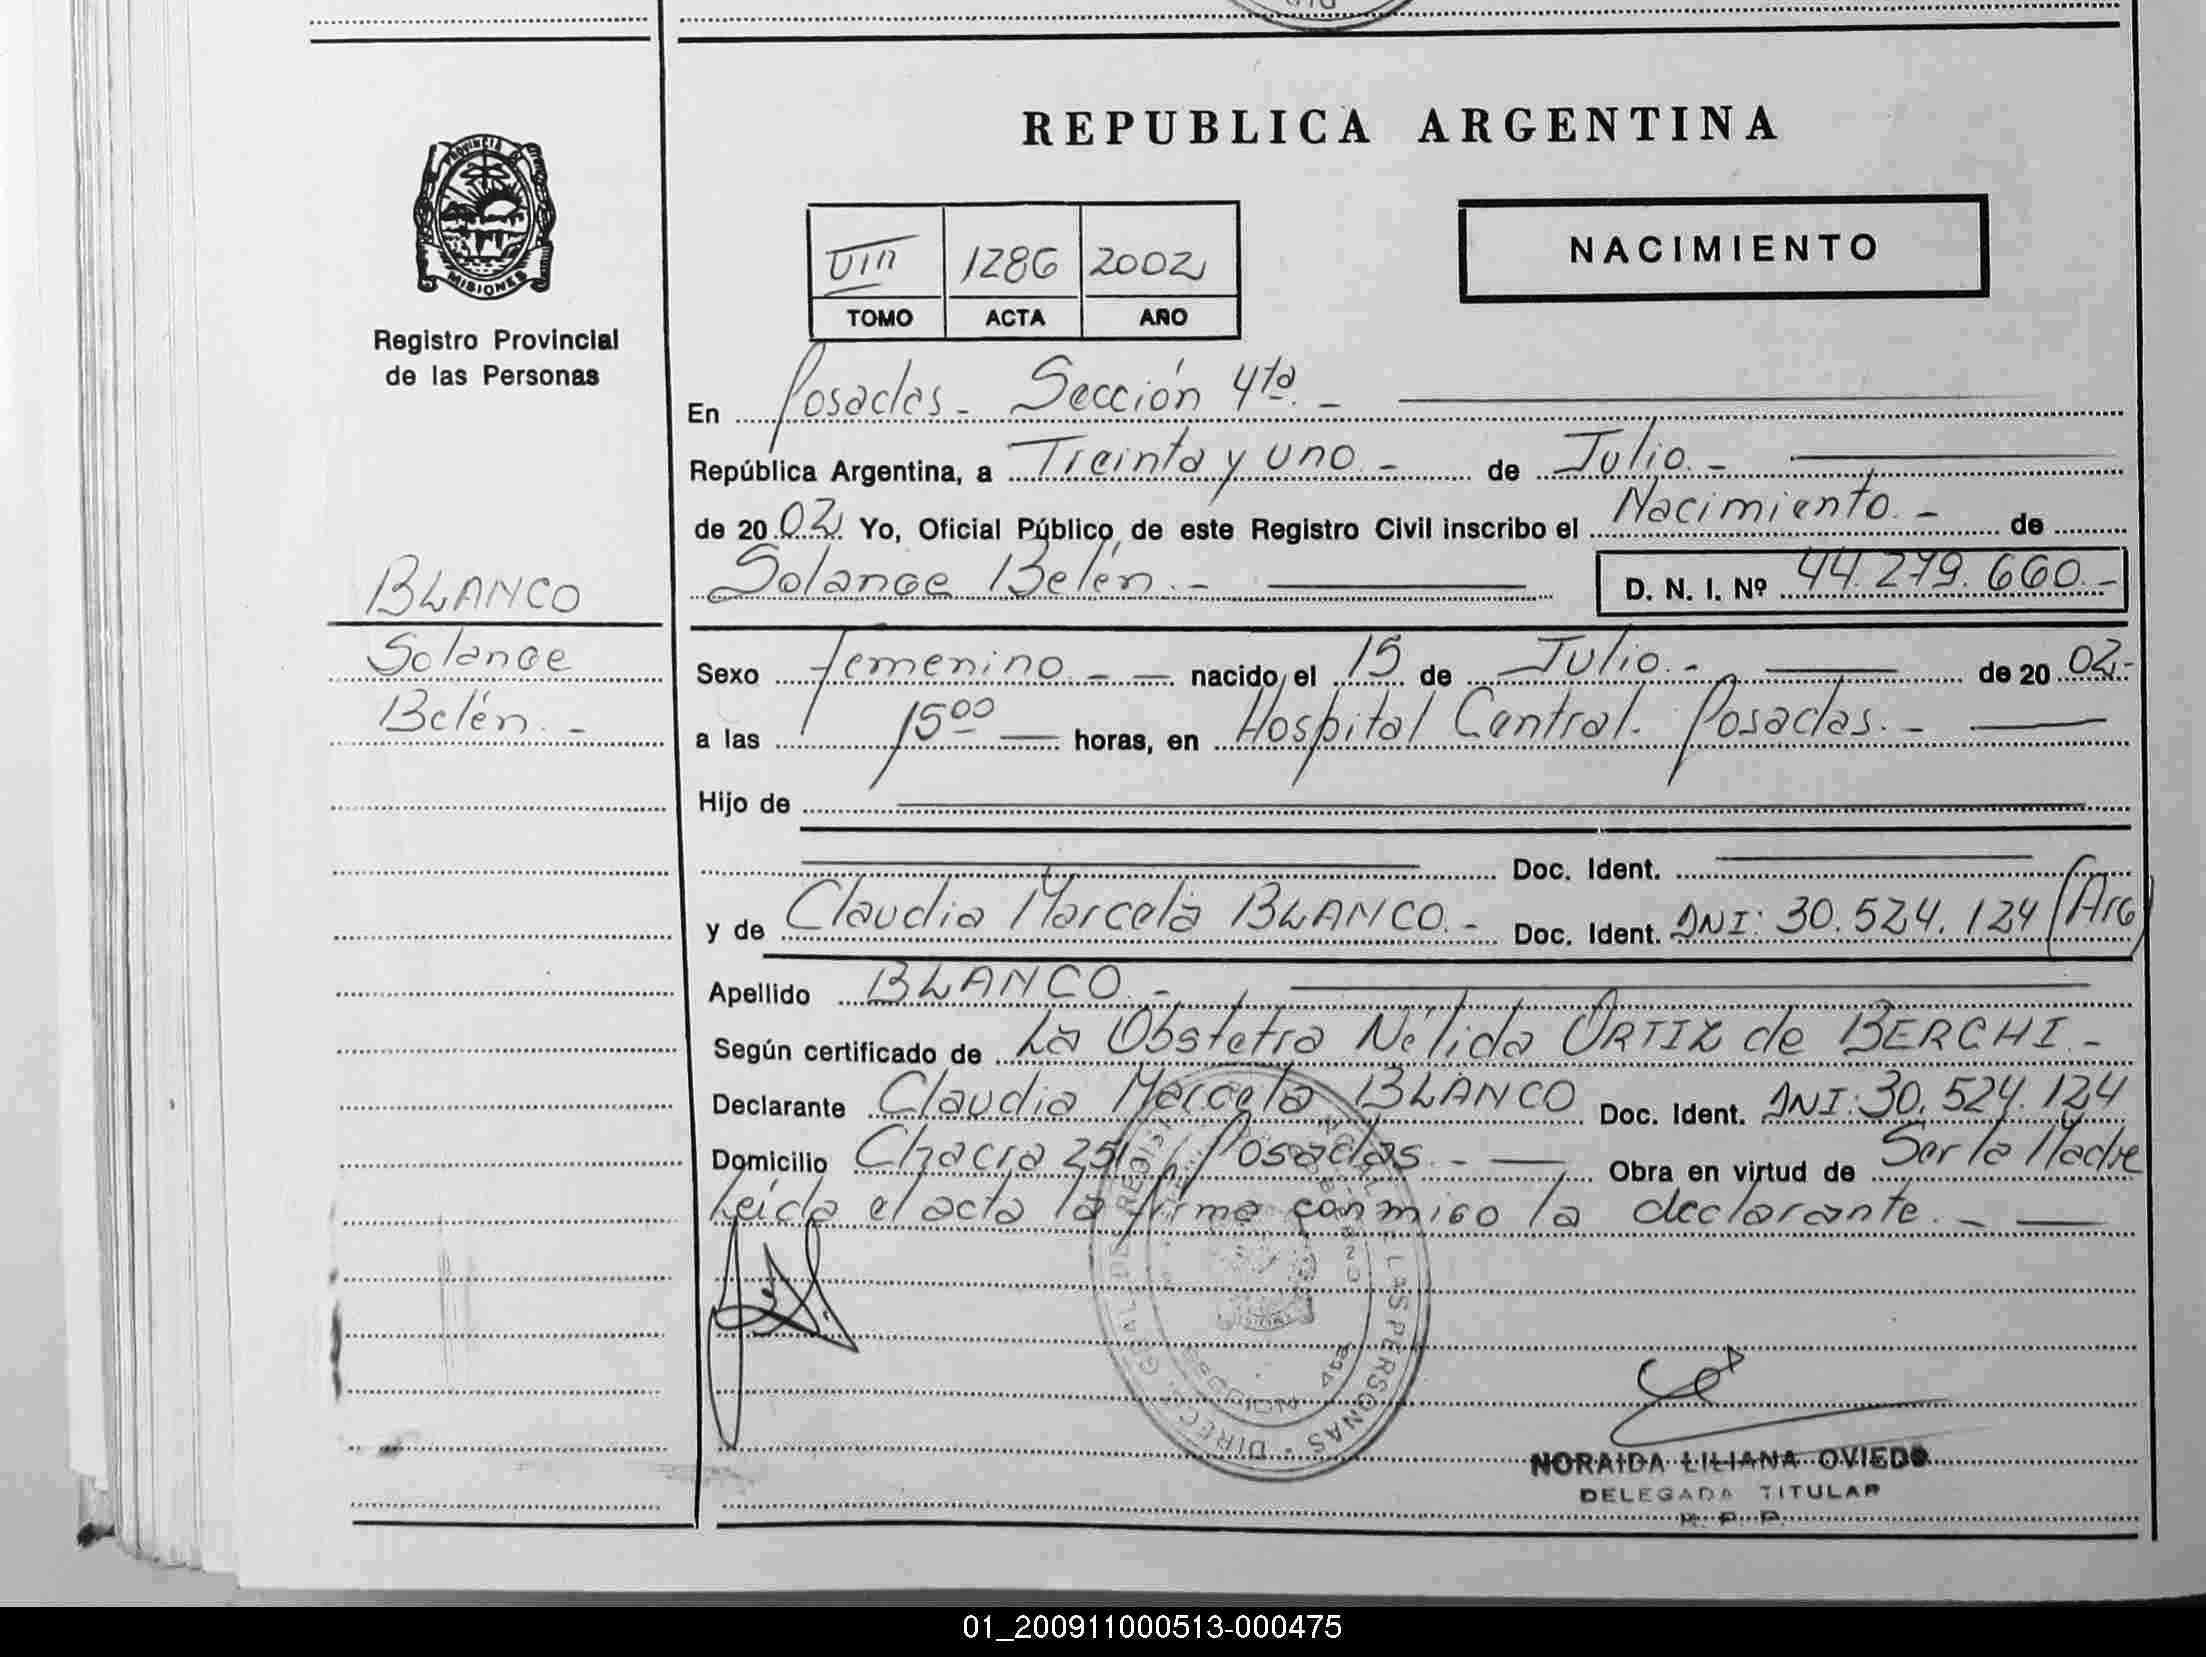 REPUBLICA ARGENTINA
PROVINCIA DE
MISIONES
Registro Provincial
de las Personas
VIII 1286 2002
TOMO ACTA AÑO
NACIMIENTO
En Posadas - Sección 4ta. -
República Argentina, a Treinta y uno - de Julio. -
de 20 02 Yo, Oficial Público, de este Registro Civil inscribo el Nacimiento. - de
Solange Belén. - D. N. I. Nº 44.279.660. -
BLANCO
Solange
Belén. -
Sexo femenino. - - nacido el 15 de Julio. - de 20 02.-
a las 15 00 horas, en Hospital Central. Posadas. -
Hijo de
Doc. Ident.
y de Claudia Marcela BLANCO. - Doc. Ident. DNI: 30.524.124 (Arg)
Apellido BLANCO. -
Según certificado de La Obstetra Nélida ORTIZ de BERCHI. -
Declarante Claudia Marcela BLANCO Doc. Ident. DNI: 30.524.124
Domicilio Chacra 251, Posadas. - Obra en virtud de Ser la Madre
Leída el acta la firma conmigo la declarante. -
DIRECC. GRAL. DE LAS PERSONAS
SECCION 4ta
NORAIDA LILIANA OVIEDO
DELEGADA TITULAR
R. P. P.
01_200911000513-000475